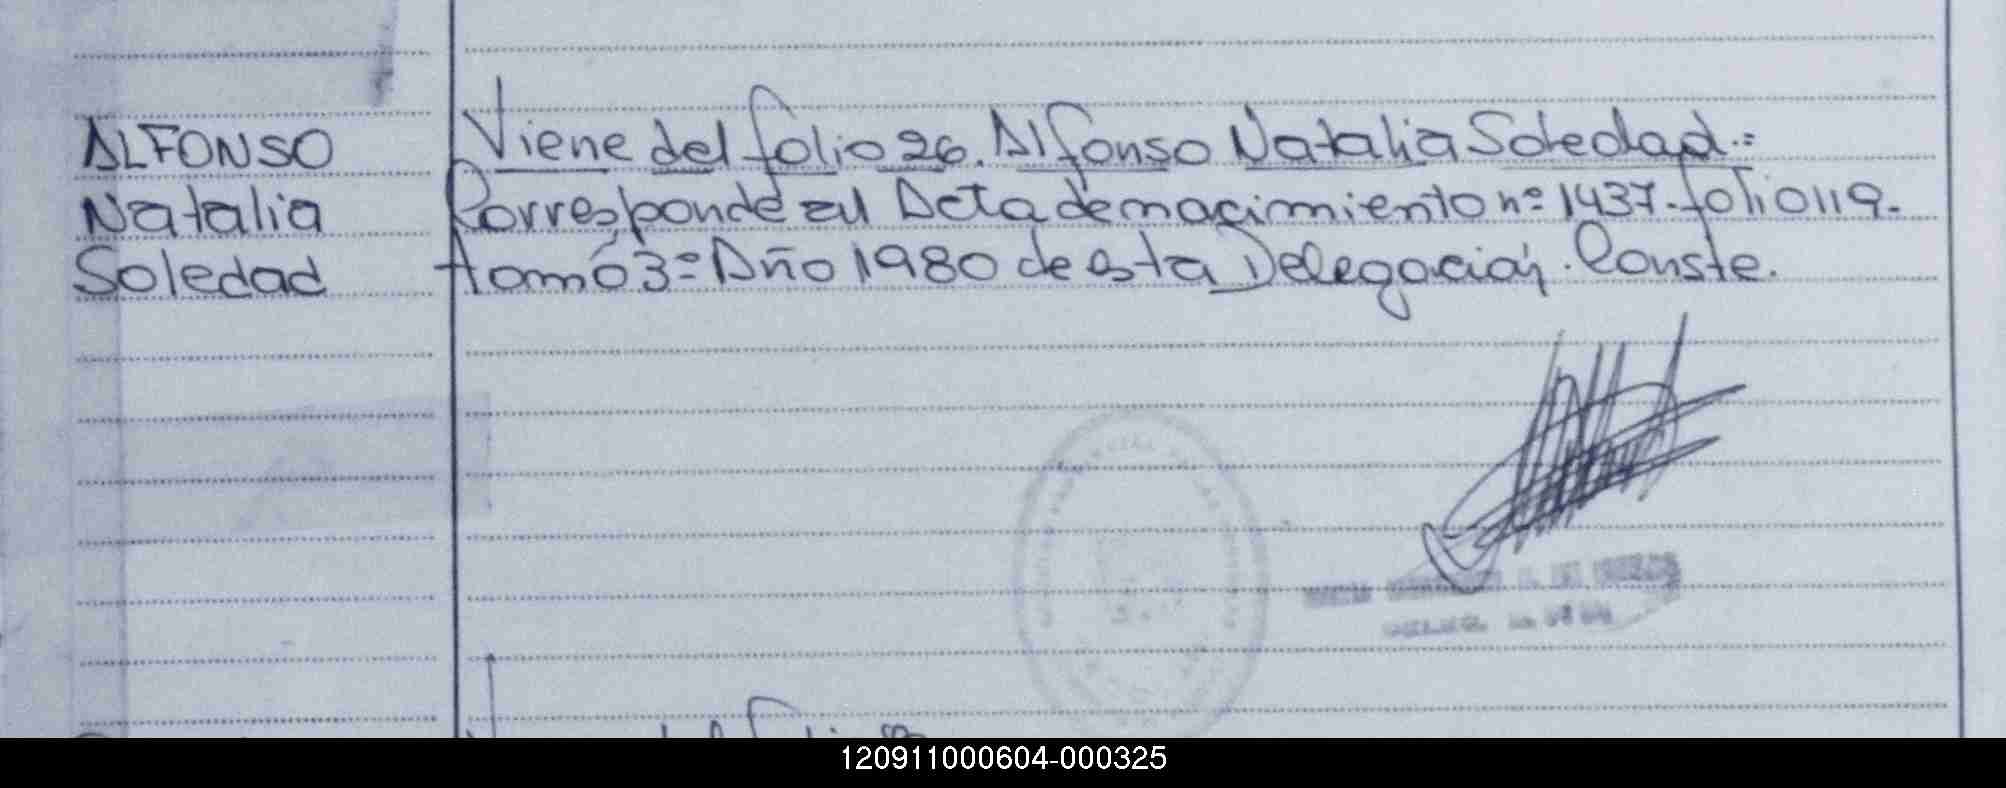 ALFONSO
Natalia
Soledad
Viene del folio 26. Alfonso Natalia Soledad.=
Corresponde al Acta de nacimiento nº 1437. folio 119.
tomo 3º Año 1980 de esta Delegación. Conste.
120911000604-000325